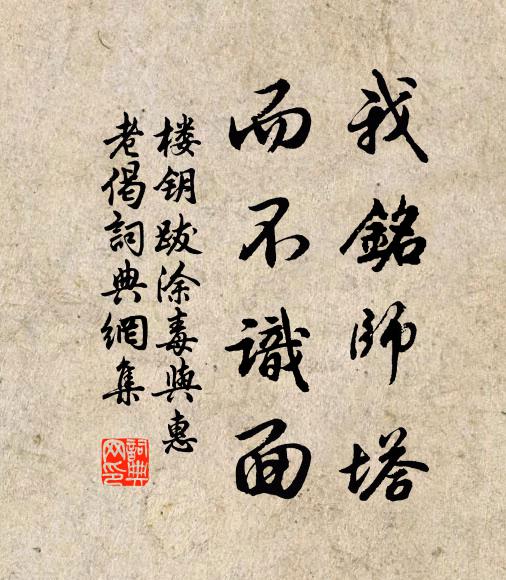 我銘師塔
而不識面
楼钥跋涂毒與惠
老偈詞典網集
詞典网印